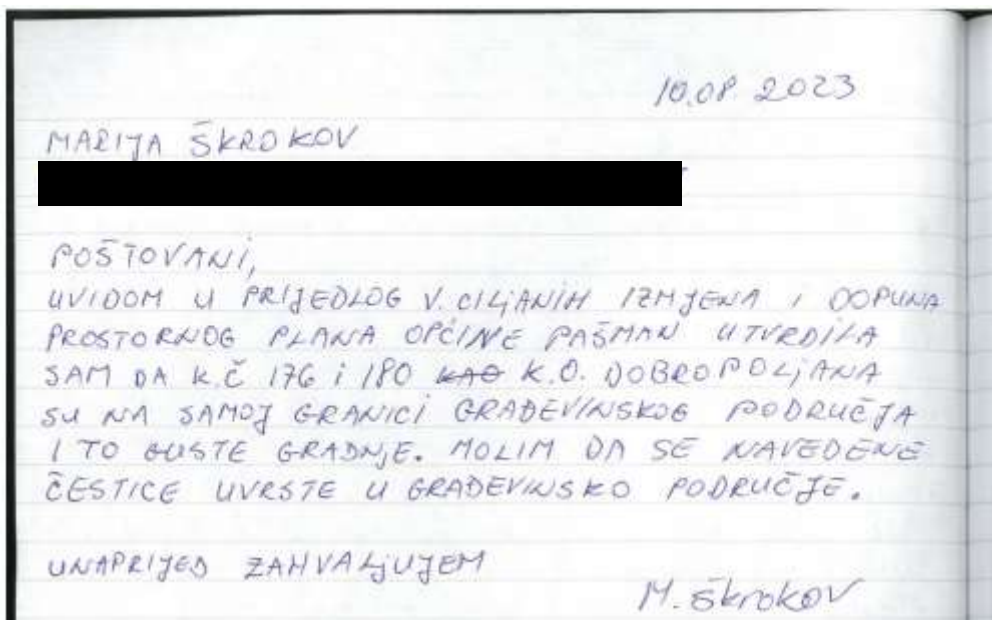 10.08.2023
MARIJA ŠKROKOV
POŠTOVANI,
UVIDOM U PRIJEDLOG V. CILJANIH IZMJENA I DOPUNA
PROSTORNOG PLANA OPĆINE PAŠMAN UTVRDILA
SAM DA K.Č 176 i 180 KAO K.O. DOBROPOLJANA
SU NA SAMOJ GRANICI GRAĐEVINSKOG PODRUČJA
I TO GUSTE GRADNJE. MOLIM DA SE NAVEDENE
ČESTICE UVRSTE U GRAĐEVINSKO PODRUČJE.
UNAPRIJED ZAHVALJUJEM
M. Škrokov